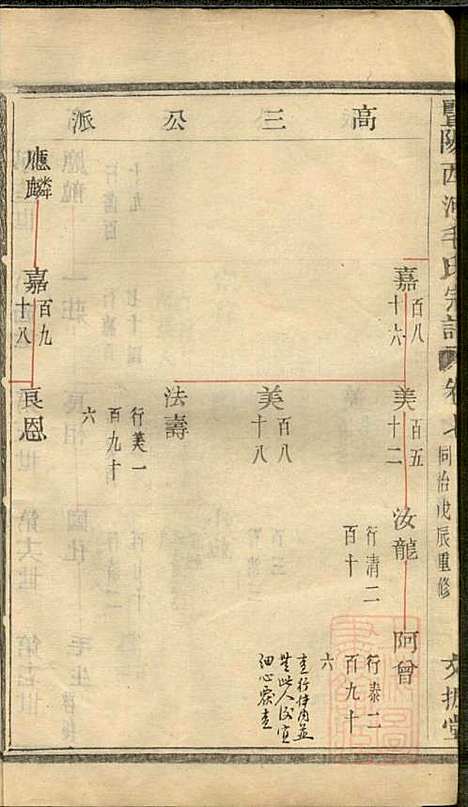 豐陵西河毛氏宗譜 卷七 同治戊辰重修 文振堂
高三公派
嘉 百八十六
美 百五十二
汝龍 行清二百十
阿曾 行泰二百九十六
查行伴內並
無此人後宜
細心察查
美 百八十八
法壽 行美一百九十六
應麟
嘉 百九十八
良恩